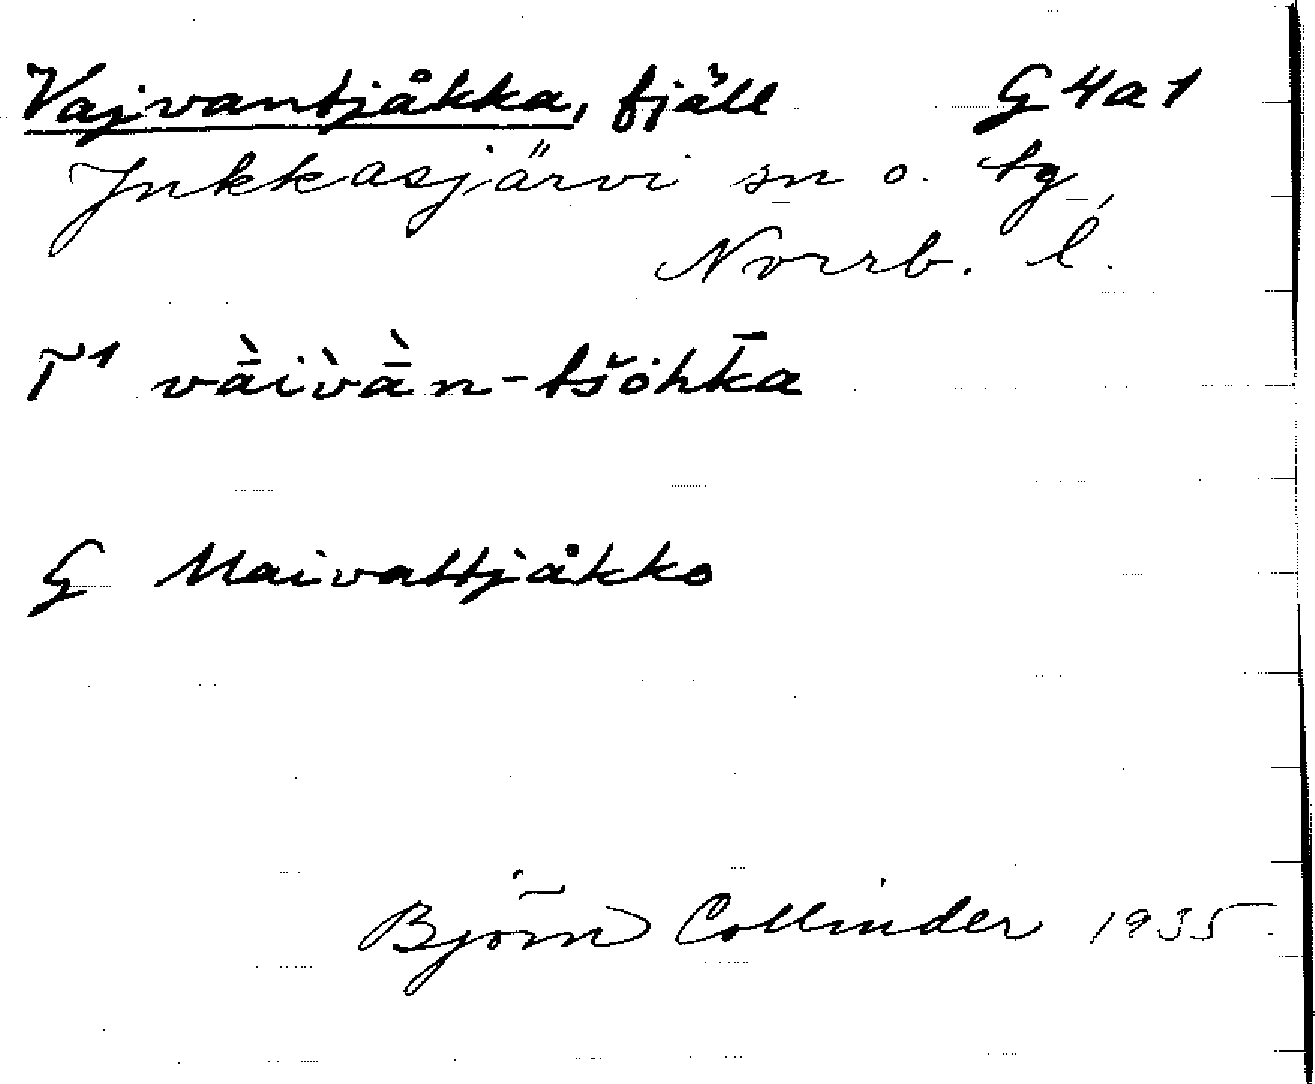 Vajvantjåkka, fjäll G4a1
Jukkasjärvi sn o. tg,
Norrb. l.
T¹ vā̀ivā̀n-tšöhk̄a
G Maivattjåkko
Björn Collinder 1935